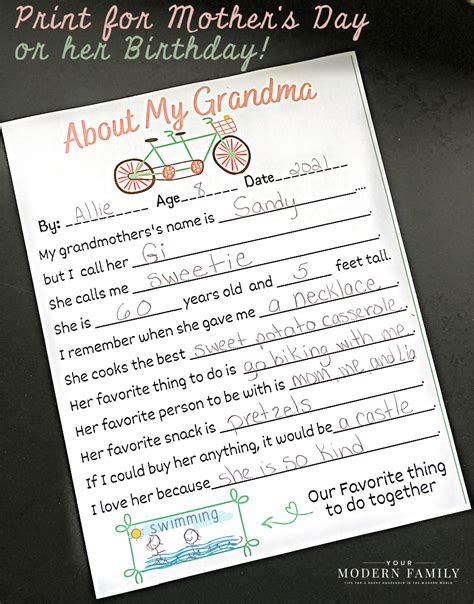 Print for Mother's Day
or her Birthday!
About My Grandma
By: Allie Age 8 Date 2021
My grandmothers's name is Sandy ....
but I call her Gi
She calls me sweetie
She is 60 years old and 5 feet tall.
I remember when she gave me a necklace.
She cooks the best sweet potato casserole.
Her favorite thing to do is go biking with me.
Her favorite person to be with is mom, me, and Lia.
Her favorite snack is pretzels
If I could buy her anything, it would be a castle
I love her because she is so kind
swimming
Our Favorite thing
to do together
YOUR
MODERN FAMILY
TIPS FOR A HAPPY HOUSEHOLD IN THE MODERN WORLD